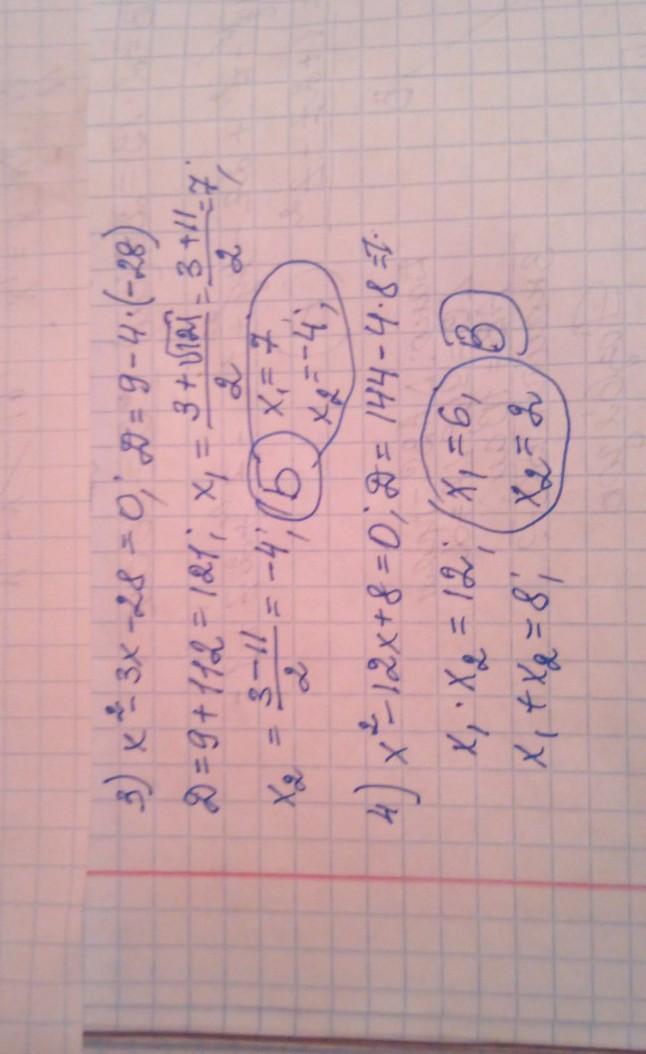 3) x²-3x-28=0; D=9-4·(-28)
D=9+112=121; x₁=(3+√121)/2=(3+11)/2=7;
x₂=(3-11)/2=-4; Б x₁=7
x₂=-4;
4) x²-12x+8=0; D=144-4·8=
x₁·x₂=12; x₁=6, В
x₁+x₂=8; x₂=2